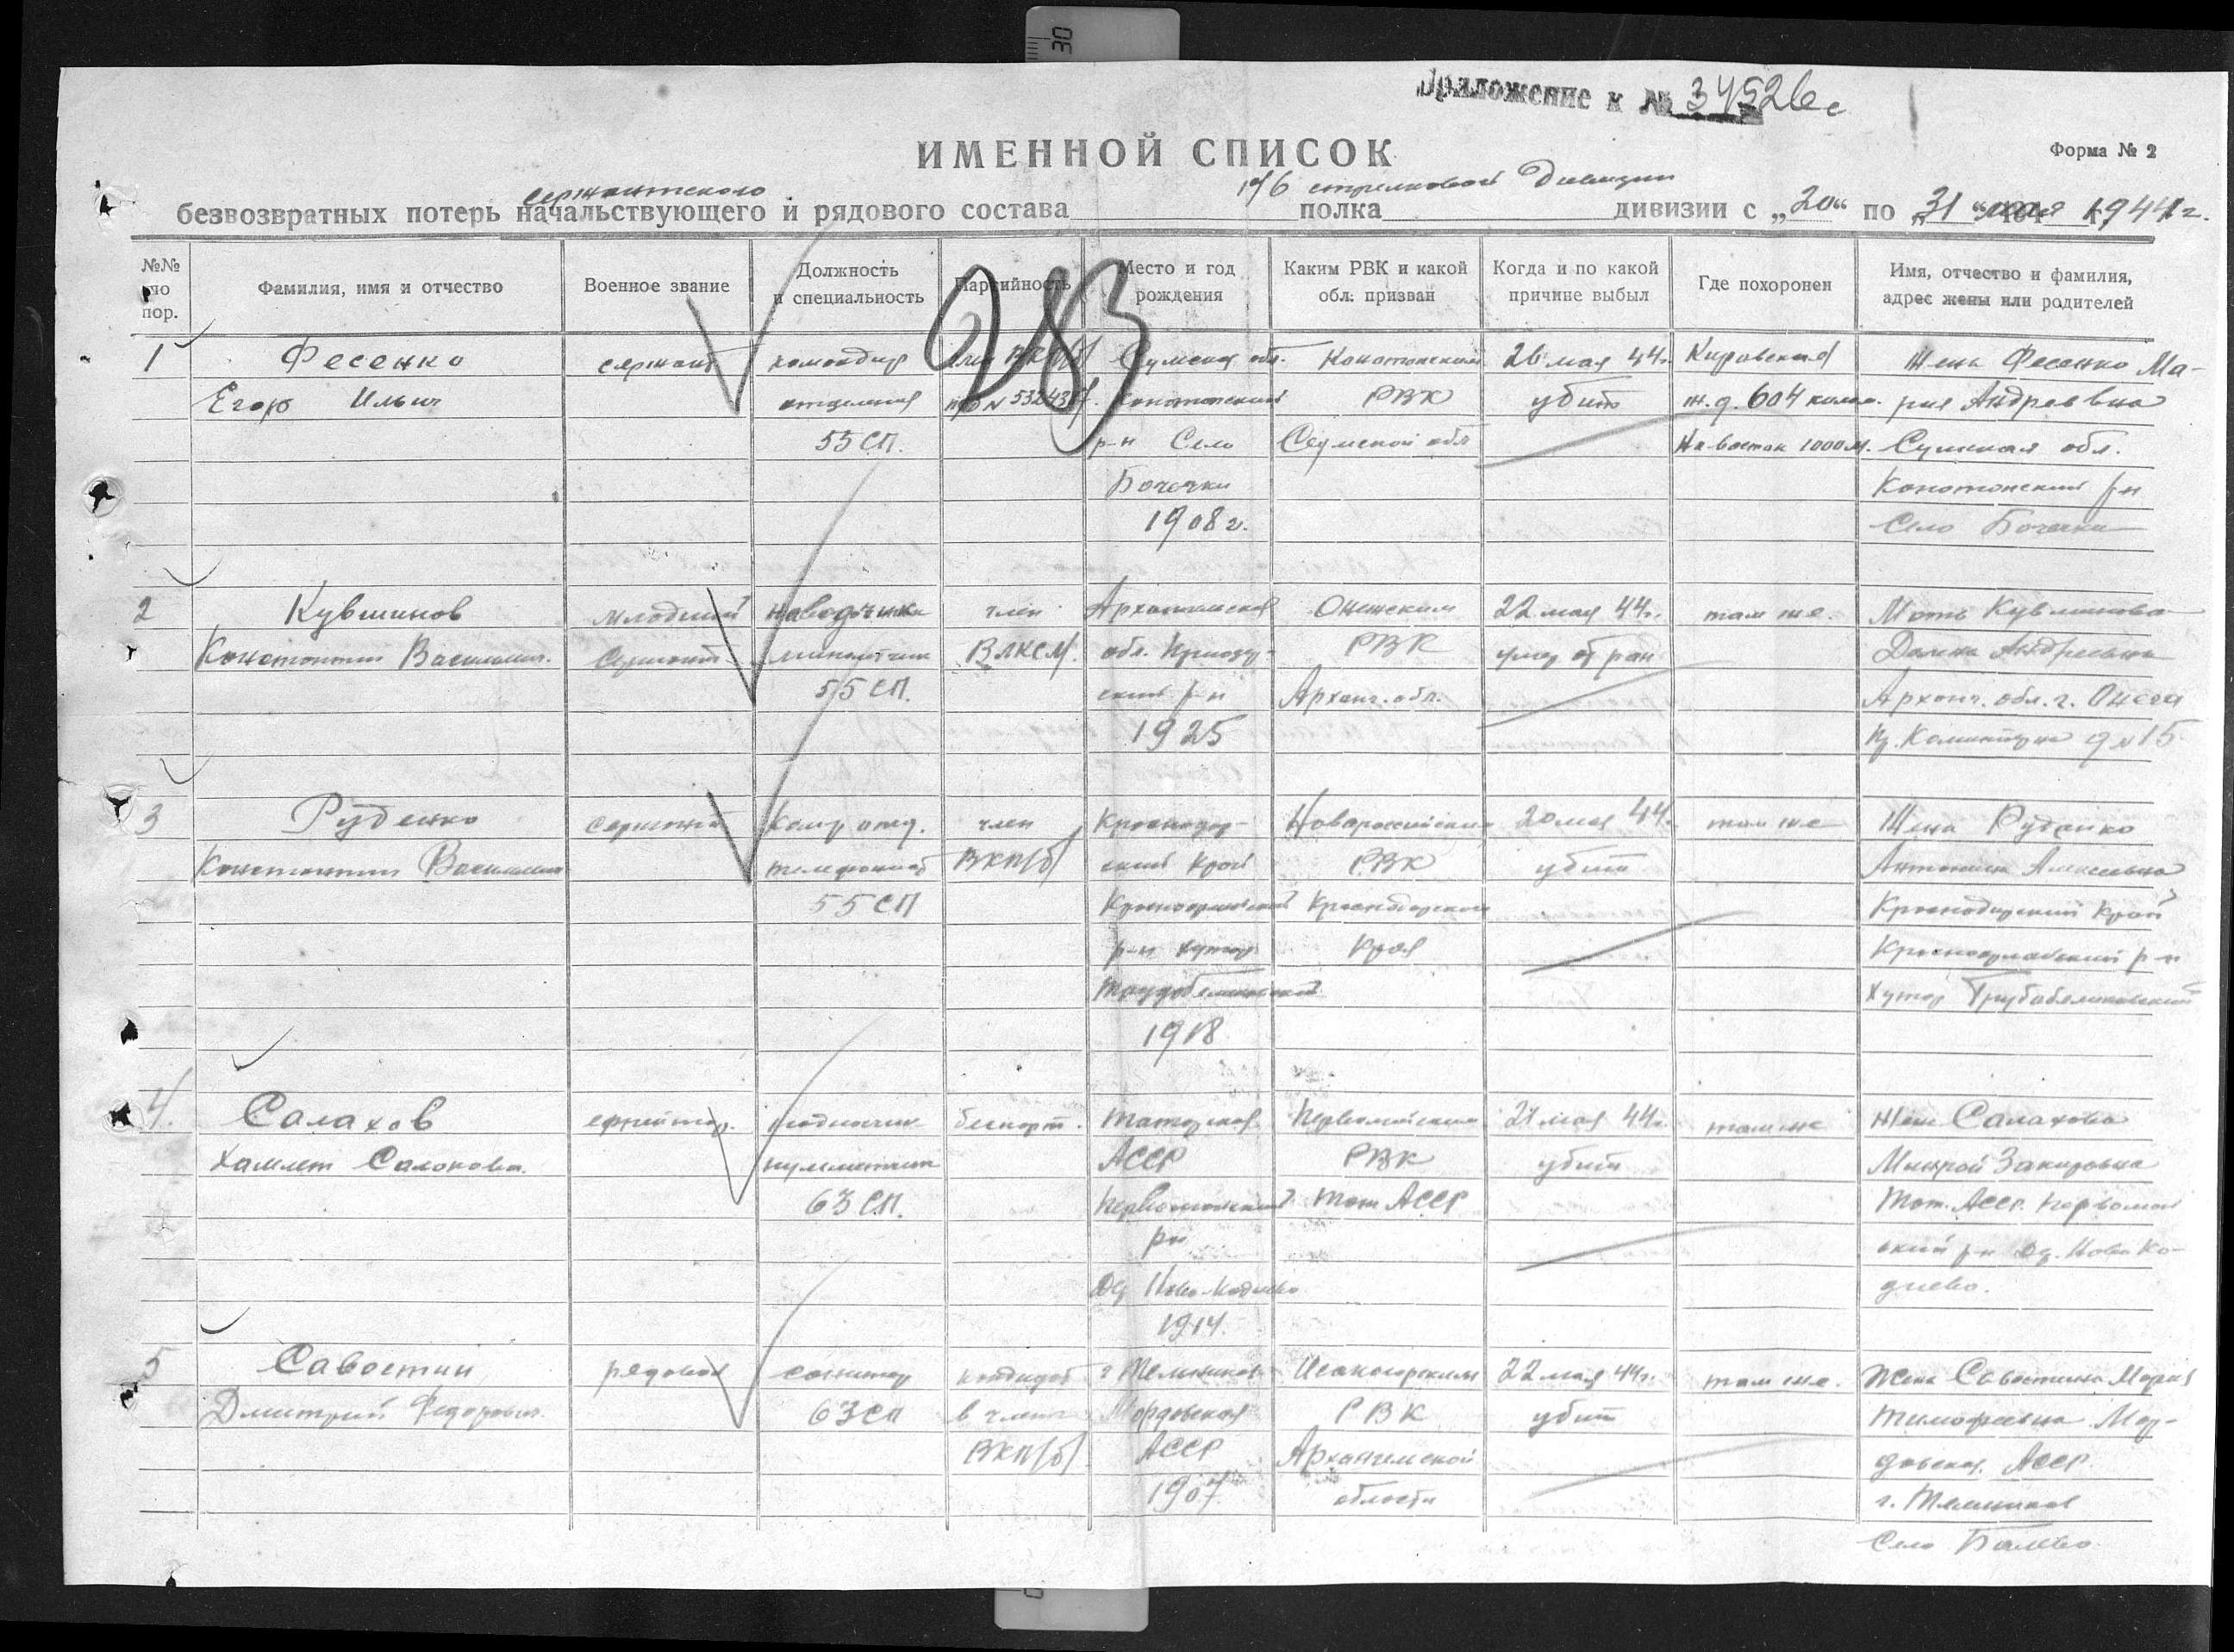 30
Приложение к № 34526с
ИМЕННОЙ СПИСОК
Форма № 2
сержантского
176 стрелковой Дивизии
безвозвратных потерь начальствующего и рядового состава полка дивизии с „20“ по „31“ мая 1944 г.
№№ по пор.
Фамилия, имя и отчество
Военное звание
Должность и специальность
Партийность
Место и год рождения
Каким РВК и какой обл. призван
Когда и по какой причине выбыл
Где похоронен
Имя, отчество и фамилия, адрес жены или родителей
283
1 Фесенко сержант командир член ВКП(б) Сумская обл. Конотопским 26 мая 44г. Кировская Жена Фесенко Ма-
Егор Ильич отделения п/б № Конотопский РВК убит ж.д. 604 килом. рия Андреевна
55 СП. р-н Село Сумской обл На восток 1000 м. Сумская обл.
Бочечки Конотопский р-н
1908 г. Село Бочечки
2 Кувшинов младший наводчик член Архангельская Онежским 22 мая 44г. там же. Мать Кувшинова
Константин Васильевич. Сержант минометчик ВЛКСМ. обл. РВК умер от ран Андреевна
55 СП. ский р-н Арханг. обл. Арханг. обл. г. Онега
1925 пр. Коминтерна д № 15
3 Руденко сержант Ком. отд. член Краснодар- Новороссийским 20 мая 44г. там же Жена Руденко
Константин Васильевич телефонист ВКП(б) ский край РВК убит Антонина Алексеевна
55 СП Красноармейский Краснодарского Краснодарский край
р-н хутор Края Красноармейский р-н
Трудобеликовский Хутор Трудобеликовский
1918
4. Салахов ефрейтор. подносчик беспарт. Татарская Первомайским 21 мая 44г. там же Жена Салахова
Хамлет пулеметчик АССР РВК убит Закировна
63 СП. Первомайский Тат АССР Тат. АССР. Первомай
р-н ский р-н Дер. Ново Ка-
Дер Ново-Кадеево деево.
1914.
5 Савостин рядовой санитар кандидат г Темников Исакогорским 22 мая 44г. там же. Жена Савостина Мария
Дмитрий Федорович. 63 СП в члены Мордовская РВК убит Тимофеевна Мор-
ВКП(б) АССР Архангельской довская. АССР.
1907 области г. Темников
Село